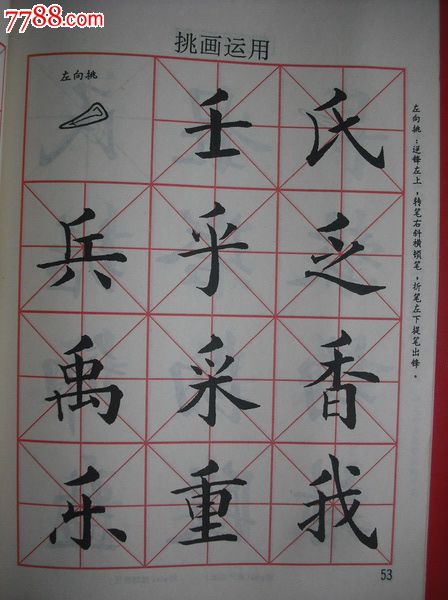 7788.com
中国收藏热线
挑画运用
左向挑
壬 氏
兵 乎 乏
禹 采 香
乐 重 我
左向挑：逆锋左上，转笔右斜横顿笔，折笔左下提笔出锋。
53